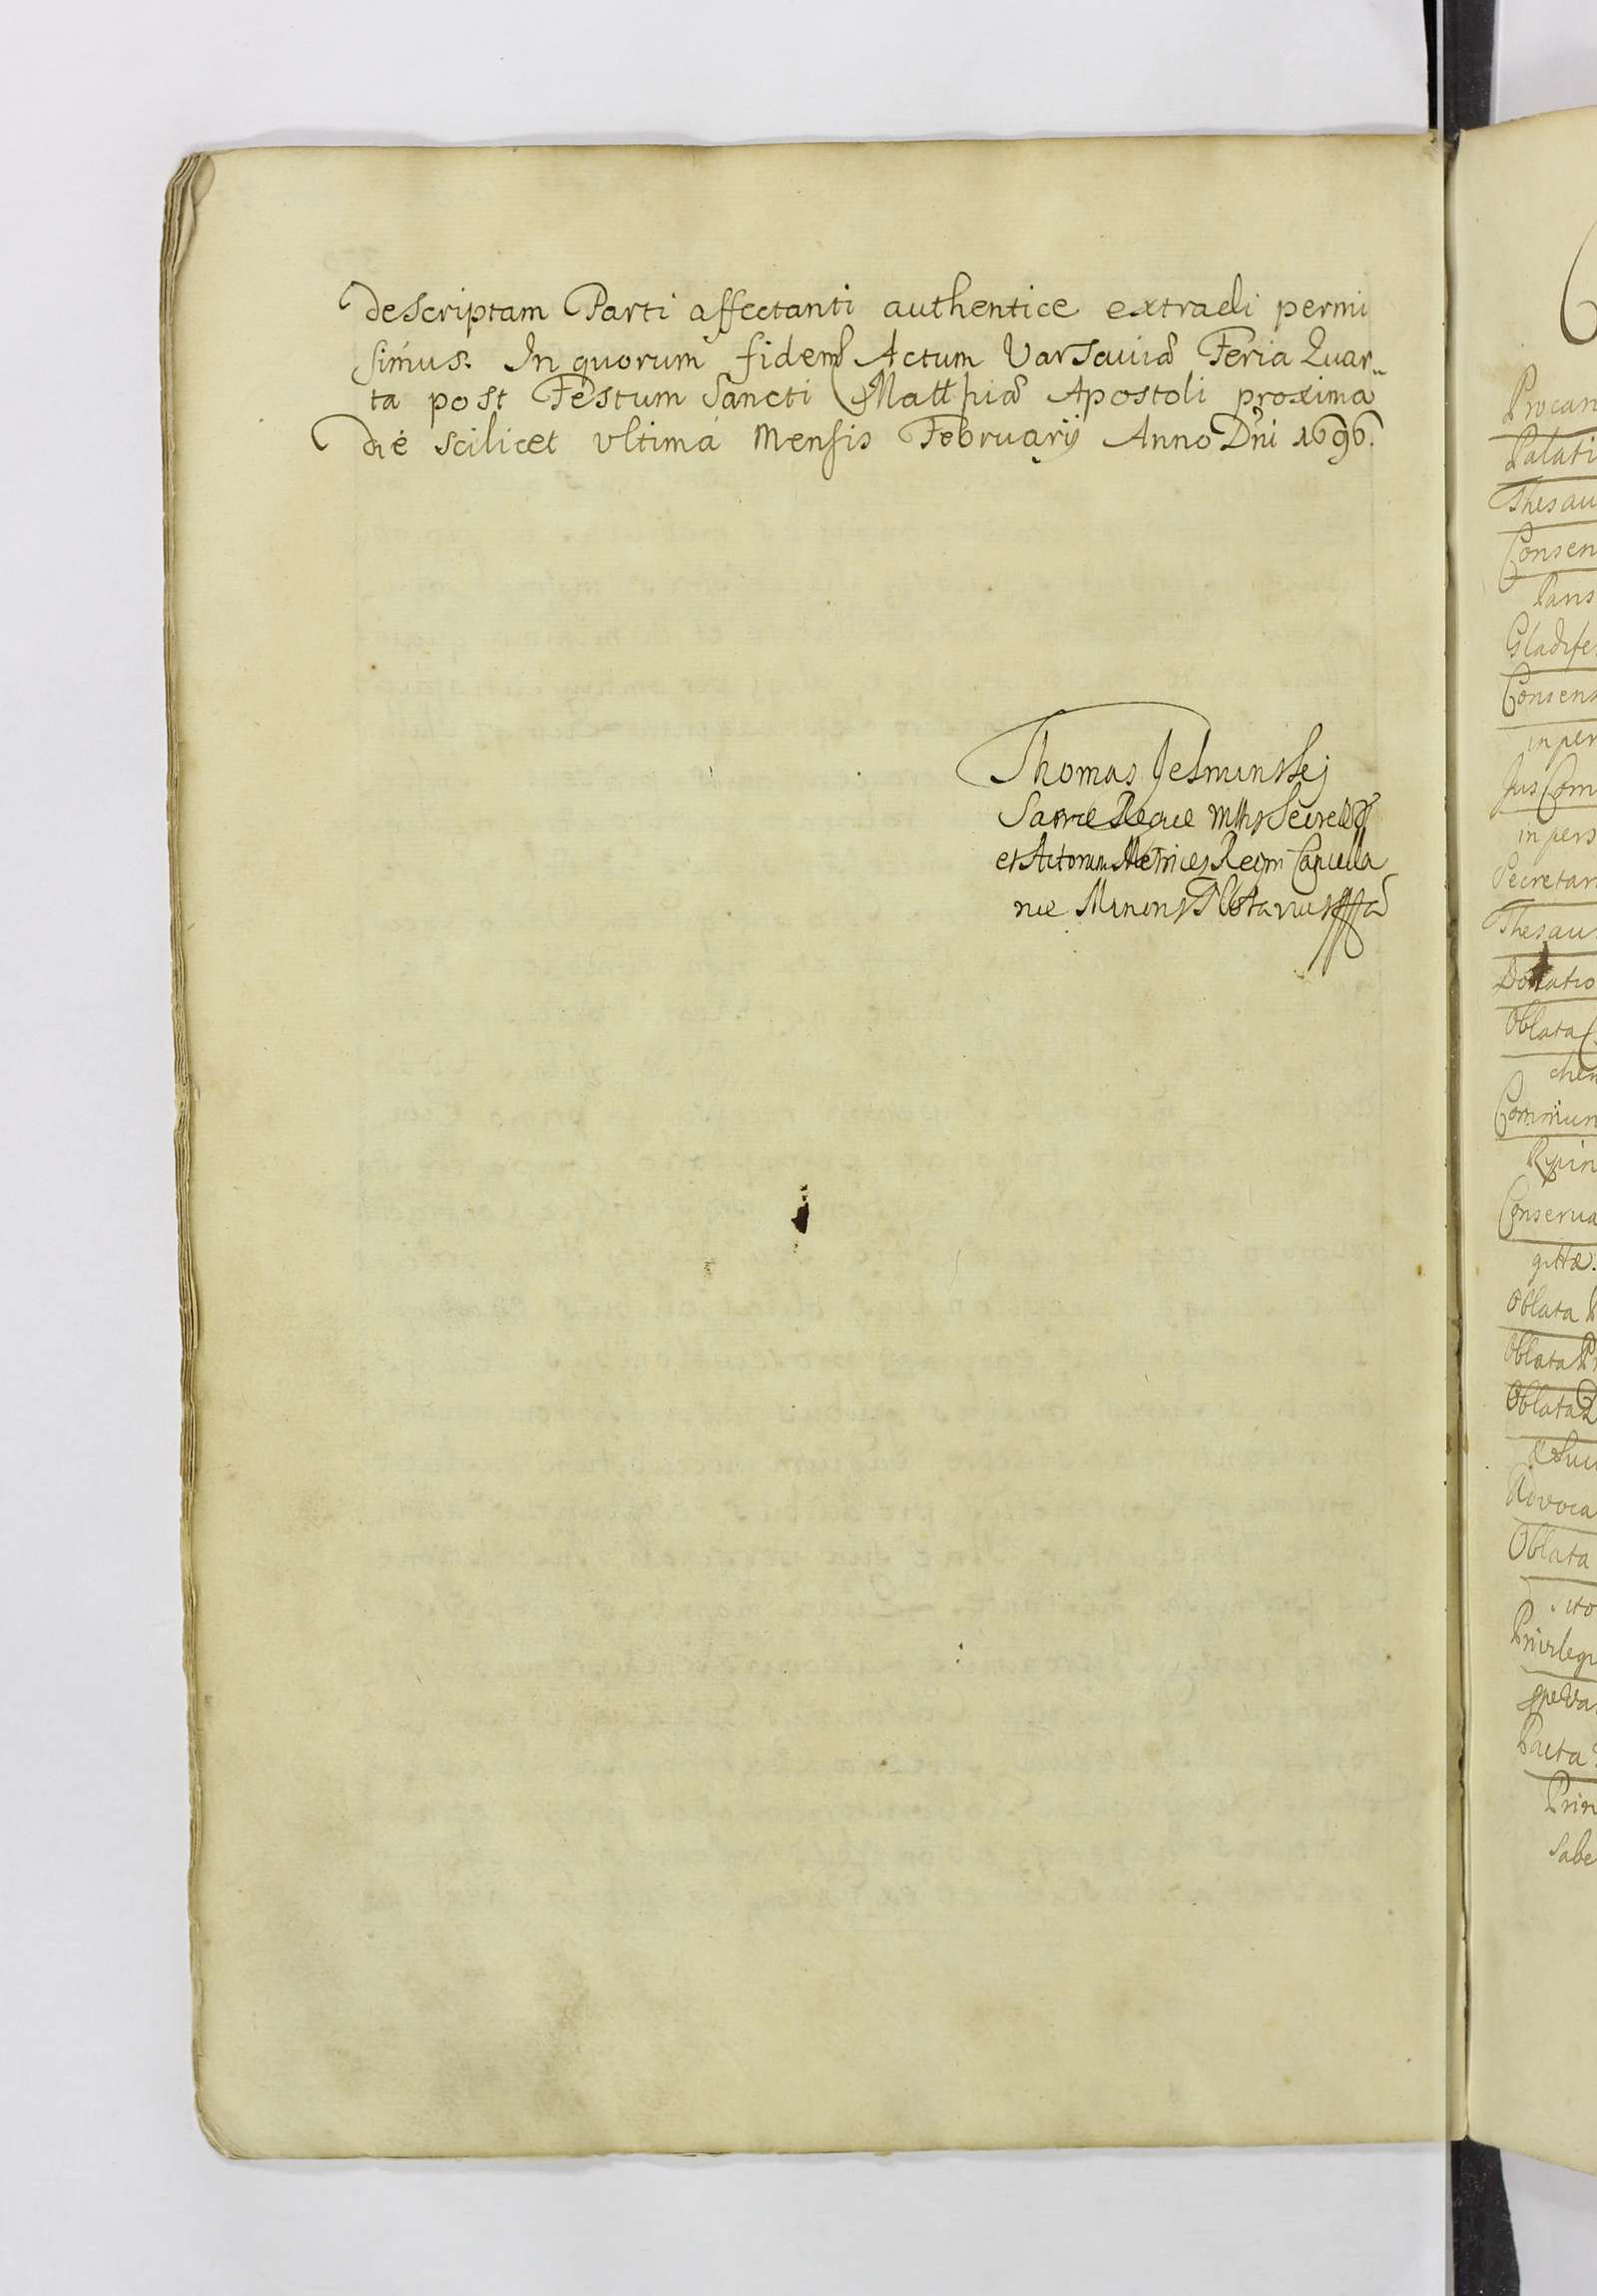 descriptam Parti affectanti authentice extradi permi
simus. In quorum fidem Actum Varsaviæ Feria Quar„
ta post Festum Sancti Matthiæ Apostoli proxima
die scilicet ultimá Mensis Februarij Anno Dni 1696.
Thomas
Sacræ Regiæ Mttis
et Actorum Metrices Regni Cancella
riæ Minoris Notarius
Procan
Palati
Thesau
Consen
Gladife
Consens
in per
Jus Com
in pers
Secretar
Thesau
Donatio
Oblata
Commun
Conserva
Oblata
Oblata Pr
Oblata
Advoca
Oblata
Privilegi
Pacta
Prin
Sabe